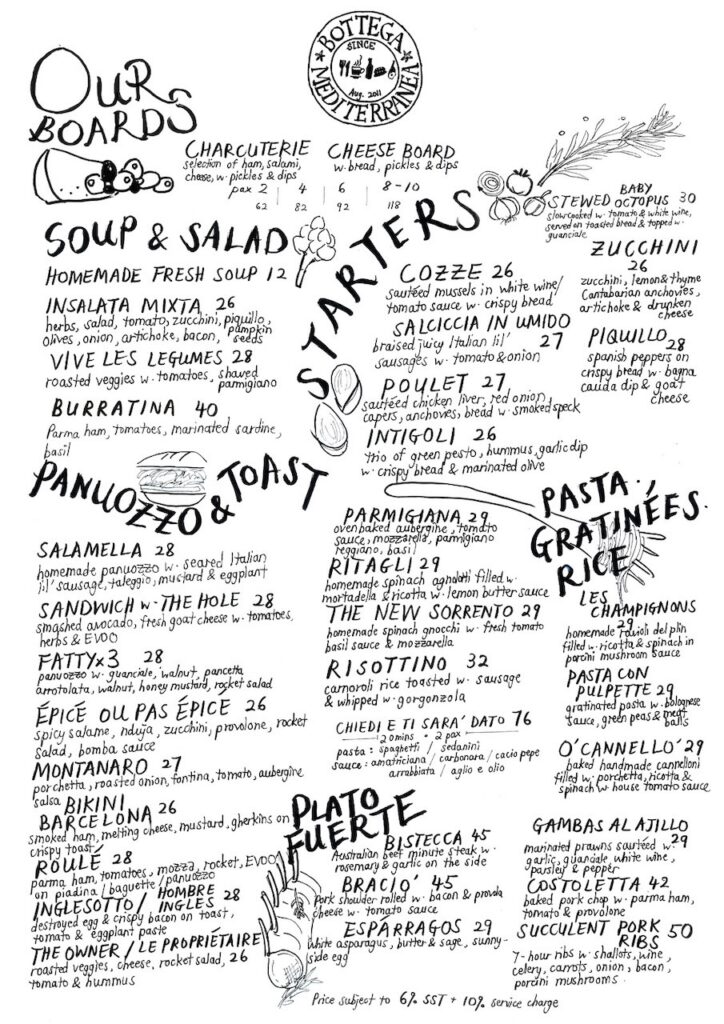 BOTTEGA
SINCE
Aug. 2011
MEDITERRANEA
OUR
BOARDS
CHARCUTERIE
selection of ham, salami,
cheese, w. pickles & dips
CHEESE BOARD
w. bread, pickles & dips
pax 2 | 4 | 6 | 8-10
62 | 82 | 92 | 118
SOUP & SALAD
HOMEMADE FRESH SOUP 12
INSALATA MIXTA 26
herbs, salad, tomato, zucchini, piquillo,
olives, onion, artichoke, bacon, pumpkin
seeds
VIVE LES LEGUMES 28
roasted veggies w. tomatoes, shaved
parmigiano
BURRATINA 40
Parma ham, tomatoes, marinated sardine,
basil
STARTERS
BABY
STEWED OCTOPUS 30
slow cooked w. tomato & white wine,
served on toasted bread & topped w.
guanciale
COZZE 26
sautéed mussels in white wine/
tomato sauce w. crispy bread
SALCICCIA IN UMIDO
braised juicy Italian lil' 27
sausages w. tomato & onion
POULET 27
sautéed chicken liver, red onion,
capers, anchovies, bread w. smoked speck
INTIGOLI 26
trio of green pesto, hummus, garlic dip
w. crispy bread & marinated olive
ZUCCHINI
26
zucchini, lemon & thyme
Cantabarian anchovies,
artichoke & drunken
cheese
PIQUILLO 28
spanish peppers on
crispy bread w. bagna
cauda dip & goat
cheese
PANUOZZO & TOAST
SALAMELLA 28
homemade panuozzo w. seared Italian
lil' sausage, taleggio, mustard & eggplant
SANDWICH w. THE HOLE 28
smashed avocado, fresh goat cheese w. tomatoes,
herbs & EVOO
FATTY x3 28
panuozzo w. guanciale, walnut, pancetta
arrotolata, walnut, honey mustard, rocket salad
ÉPICÉ OU PAS ÉPICE 26
spicy salame, nduja, zucchini, provolone, rocket
salad, bomba sauce
MONTANARO 27
porchetta, roasted onion, fontina, tomato, aubergine
salsa
BIKINI
BARCELONA 26
smoked ham, melting cheese, mustard, gherkins on
crispy toast
ROULÉ 28
parma ham, tomatoes, mozza, rocket, EVOO
on piadina / baguette / panuozzo
INGLESOTTO / HOMBRE
INGLES 28
destroyed egg & crispy bacon on toast,
tomato & eggplant paste
THE OWNER / LE PROPRIÉTAIRE
roasted veggies, cheese, rocket salad, 26
tomato & hummus
PASTA.
GRATINÉES.
RICE
PARMIGIANA 29
oven baked aubergine, tomato
sauce, mozzarella, parmigiano
reggiano, basil
RITAGLI 29
homemade spinach agnolotti filled w.
mortadella & ricotta w. lemon butter sauce
THE NEW SORRENTO 29
homemade spinach gnocchi w. fresh tomato
basil sauce & mozzarella
RISOTTINO 32
carnoroli rice toasted w. sausage
& whipped w. gorgonzola
CHIEDI E TI SARA' DATO 76
20 mins • 2 pax
pasta: spaghetti / sedanini
sauce: amatriciana / carbonara / cacio pepe
arrabbiata / aglio e olio
LES
CHAMPIGNONS
29
homemade ravioli del plin
filled w. ricotta & spinach in
porcini mushroom sauce
PASTA CON
PULPETTE 29
gratinated pasta w. bolognese
sauce, green peas & meat
balls
O'CANNELLO' 29
baked handmade cannelloni
filled w. porchetta, ricotta &
spinach w. house tomato sauce
PLATO
FUERTE
BISTECCA 45
Australian beef minute steak w.
rosemary & garlic on the side
BRACIO' 45
Pork shoulder rolled w. bacon & provola
cheese w. tomato sauce
ESPÁRRAGOS 29
White asparagus, butter & sage, sunny-
side egg
GAMBAS AL AJILLO
marinated prawns sautéed w. 29
garlic, guanciale white wine,
parsley & pepper
COSTOLETTA 42
baked pork chop w. parma ham,
tomato & provolone
SUCCULENT PORK
RIBS 50
7-hour ribs w. shallots, wine,
celery, carrots, onion, bacon,
porcini mushrooms.
Price subject to 6% SST + 10% service charge